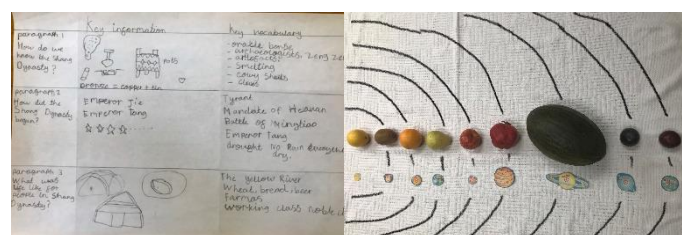 Key information
Key vocabulary
paragraph 1
How do we
know the Shang
Dynasty?
pots
bronze = copper + tin
- oracle bones
- archaeologists, Zeng Ze
- artefacts
- smelting
- cowry shells
- clans
paragraph 2
How did the
Shang Dynasty
began?
Emperor Jie
Emperor Tang
Tyrant
Mandate of Heaven
Battle of Mingtiao
Emperor Tang
drought no Rain
dry.
paragraph 3
What was
life like for
people in Shang
Dynasty?
The Yellow River
Wheat, bread, beer
Farmers
Working class noble